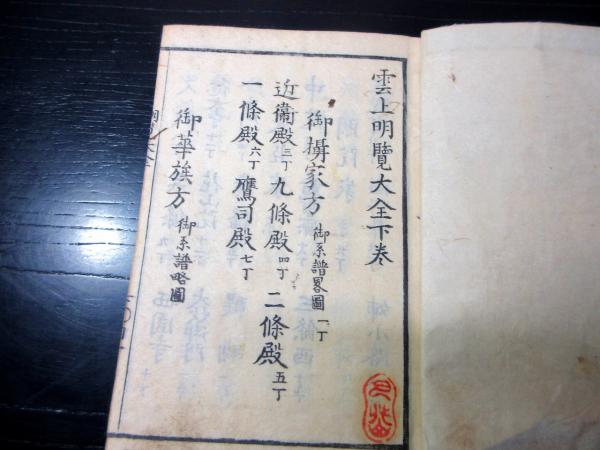 雲上明覧大全下巻
御攝家方 御系譜畧圖 一丁
近衞殿 三丁 九條殿 四丁 二條殿 五丁
一條殿 六丁 鷹司殿 七丁
御華族方 御系譜略圖